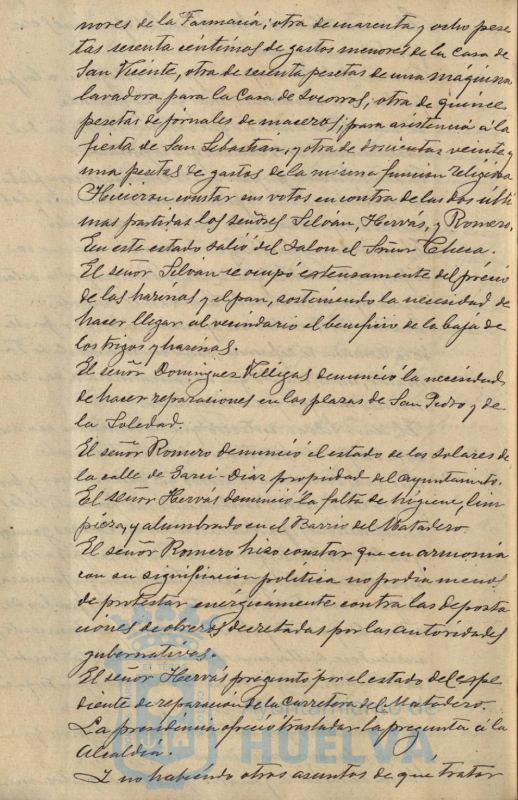 nores de la Farmacia; otra de cuarenta y ocho pese
tas sesenta céntimos de gastos menores de la Casa de
San Vicente, otra de sesenta pesetas de una máquina
lavadora para la Casa de Socorros; otra de quince
pesetas de jornales de maceros; para asistencia á la
fiesta de San Sebastián, y otra de doscientas veinte y
una pesetas de gastos de la misma función religiosa
Hicieron constar sus votos en contra de las dos últi
mas partidas los señores Silván, Hervás, y Romero.
En este estado salió del salon el Señor Checa.
El señor Silván se ocupó extensamente del precio
de las harinas y el pan, sosteniendo la necesidad de
hacer llegar al vecindario el beneficio de la baja de
los trigos y harinas.
El señor Dominguez Villegas denunció la necesidad
de hacer reparaciones en las plazas de San Pedro y de
la Soledad.
El señor Romero denunció el estado de los solares de
la calle de Garci-Diaz propiedad del Ayuntamto.
El señor Hervás denunció la falta de higiene, lim
pieza, y alumbrado en el Barrio del Matadero.
El señor Romero hizo constar que en armonia
con su significacion politica no podia menos
de protestar enérgicamente contra las deporta
ciones de obreros decretadas por las autoridades
gubernativas.
El señor Hervás preguntó por el estado del expe
diente de reparación de la Carretera del Matadero.
La presidencia ofreció trasladar la pregunta á la
Alcaldía.
I no habiendo otros asuntos de que tratar
HUELVA